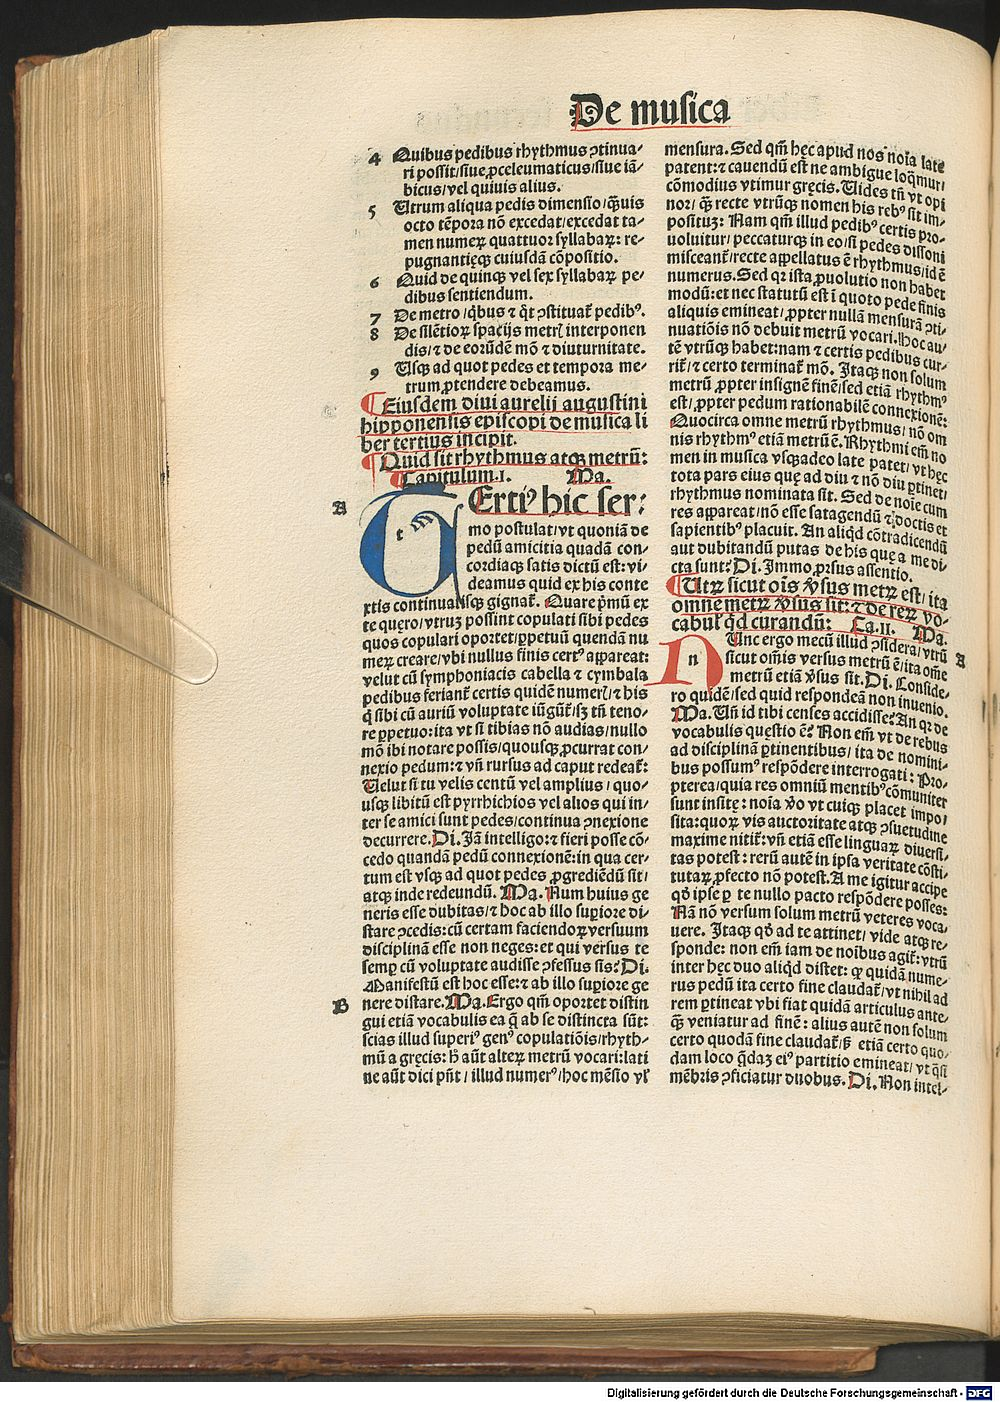 De musica
4 Quibus pedibus rhythmus ꝯtinua⸗
ri possit/siue ꝓceleumaticus/siue iã⸗
bicus/vel quiuis alius.
5 Utrum aliqua pedis dimensio/q̃uis
octo tẽpora nõ excedat/excedat ta⸗
men numeꝝ quattuor syllabaꝝ: re⸗
pugnantięqꝫ cuiusdã cõpositio.
6 Quid de quinqꝫ vel sex syllabaꝝ pe⸗
dibus sentiendum.
7 De metro/q̇bus ⁊ q̇t ꝯstituat᷑ pedibꝰ.
8 De silẽtioꝝ spacijs metri interponen
dis/⁊ de eorũdẽ mõ ⁊ diuturnitate.
9 Usqꝫ ad quot pedes et tempora me⸗
trum ꝓtendere debeamus.
¶ Eiusdem diui aurelij augustini
hipponensis episcopi de musica li
ber tertius incipit.
¶ Quid sit rhythmus atqꝫ metrũ:
¶ Capitulum.I. Ma.
A
t
Ertiꝰ hic ser:
mo postulat/vt quoniã de
pedũ amicitia quadã con⸗
cordiaqꝫ satis dictũ est: vi⸗
deamus quid ex his conte
xtis continuatisqꝫ gignat᷑. Quare p̃mũ ex
te quęro/vtruꝫ possint copulati sibi pedes
quos copulari oportet/ꝑpetuũ quendã nu
meꝝ creare/vbi nullus finis certꝰ appareat:
velut cũ symphoniacis cabella ⁊ cymbala
pedibus feriant᷑ certis quidẽ numeri/⁊ his
q̇ sibi cũ auriũ voluptate iũgũt᷑/sꝫ tñ teno⸗
re ꝑpetuo: ita vt si tibias nõ audias/nullo
mõ ibi notare possis/quousqꝫ ꝓcurrat con⸗
nexio pedum: ⁊ vñ rursus ad caput redeat᷑:
Uelut si tu velis centũ vel amplius/quo⸗
usqꝫ libitũ est pyrrhichios vel alios qui in⸗
ter se amici sunt pedes/continua ꝯnexione
decurrere. Di. Jã intelligo: ⁊ fieri posse cõ⸗
cedo quandã pedũ connexionẽ: in qua cer⸗
tum est vsqꝫ ad quot pedes ꝓgrediẽdũ sit/
atqꝫ inde redeundũ. Ma. Num huius ge
neris esse dubitas/⁊ hoc ab illo suꝑiore di⸗
stare ꝯcedis: cũ certam faciendoꝝ versuum
disciplinã esse non neges: et qui versus te
semꝑ cũ voluptate audisse ꝯfessus sis? Di.
Manifestũ est hoc esse: ⁊ ab illo suꝑiore ge
B
nere distare. Ma. Ergo qm̃ oportet distin
gui etiã vocabulis ea q̃ ab se distincta sũt:
scias illud superiꝰ genꝰ copulatiõis/rhyth⸗
mũ a gręcis: h̃ aũt alteꝝ metrũ vocari: lati
ne aũt dici pñt/illud numerꝰ/hoc mẽsio vl̃
mensura. Sed qm̃ hęc apud nos noĩa late
patent: ⁊ cauendũ est ne ambigue loq̃mur/
cõmodius vtimur gręcis. Uides tñ vt opi
nor/q̃ recte vtrũqꝫ nomen his rebꝰ sit im⸗
posituꝫ: Nam qm̃ illud pedibꝰ certis pro⸗
uoluitur/peccaturqꝫ in eo/si pedes dissoni
misceant᷑/recte appellatus ẽ rhythmus/id ẽ
numerus. Sed qꝛ ista ꝓuolutio non habet
modũ: et nec statutũ est ĩ quoto pede finis
aliquis emineat/ꝓpter nullã mensurã ꝯti⸗
nuatiõis nõ debuit metrũ vocari. Hoc au⸗
tẽ vtrũqꝫ habet: nam ⁊ certis pedibus cur⸗
rit᷑/⁊ certo terminat᷑ mõ. Itaqꝫ non solum
metrũ ꝓpter insignẽ finẽ/sed etiã rhythmꝰ
est/ꝓpter pedum rationabilẽ connexionẽ:
Quocirca omne metrũ rhythmus/nõ om
nis rhythmꝰ etiã metrũ ẽ. Rhythmi em̃ no
men in musica vsqꝫadeo late patet/vt hęc
tota pars eius quę ad diu ⁊ nõ diu ꝑtinet/
rhythmus nominata sit. Sed de noĩe cum
res appareat/nõ esse satagendũ ⁊ doctis et
sapientibꝰ placuit. An aliqd̃ cõtradicendũ
aut dubitandũ putas de his quę a me di⸗
cta sunt? Di. Immo ꝓrsus assentio.
¶ Utꝝ sicut oĩs v̾sus metꝝ est/ita
omne metꝝ v̾sus sit: ⁊ de reꝝ vo⸗
cabul᷑ q̇d curandũ: Ca.II. Ma.
n
A
Unc ergo mecũ illud ꝯsidera/vtrũ
sicut om̃is versus metrũ ẽ/ita om̃e
metrũ etiã v̾sus sit. Di. Conside⸗
ro quidẽ/sed quid respondeã non inuenio.
Ma. Uñ id tibi censes accidisse? An qꝛ de
vocabulis quęstio ẽ? Non em̃ vt de rebus
ad disciplinã ꝑtinentibus/ita de nomini⸗
bus possumꝰ respõdere interrogati: Pro⸗
pterea/quia res omniũ mentibꝰ cõmuniter
sunt insitę: noĩa v̾o vt cuiqꝫ placet impo⸗
sita: quoꝝ vis auctoritate atqꝫ ꝯsuetudine
maxime nitit᷑: vñ etiã esse linguaꝝ diuersi⸗
tas potest: rerũ autẽ in ipsa veritate cõsti⸗
tutaꝝ ꝓfecto nõ potest. A me igitur accipe
qd̃ ipse ꝑ te nullo pacto respõdere posses:
Nã nõ versum solum metrũ veteres voca⸗
uere. Itaqꝫ qd̃ ad te attinet/vide atqꝫ re⸗
sponde: non em̃ iam de noĩbus agit᷑: vtrũ
inter hęc duo aliqd̃ distet: qꝛ quidã nume⸗
rus pedũ ita certo fine claudat᷑/vt nihil ad
rem ꝑtineat vbi fiat quidã articulus ante⸗
q̃ veniatur ad finẽ: alius autẽ non solum
certo quodã fine claudat᷑/sꝫ etiã certo quo⸗
dam loco q̃daꝫ eiꝰ partitio emineat/vt q̃si
mẽbris ꝯficiatur duobus. Di. Non intel⸗
Digitalisierung gefördert durch die Deutsche Forschungsgemeinschaft - DFG